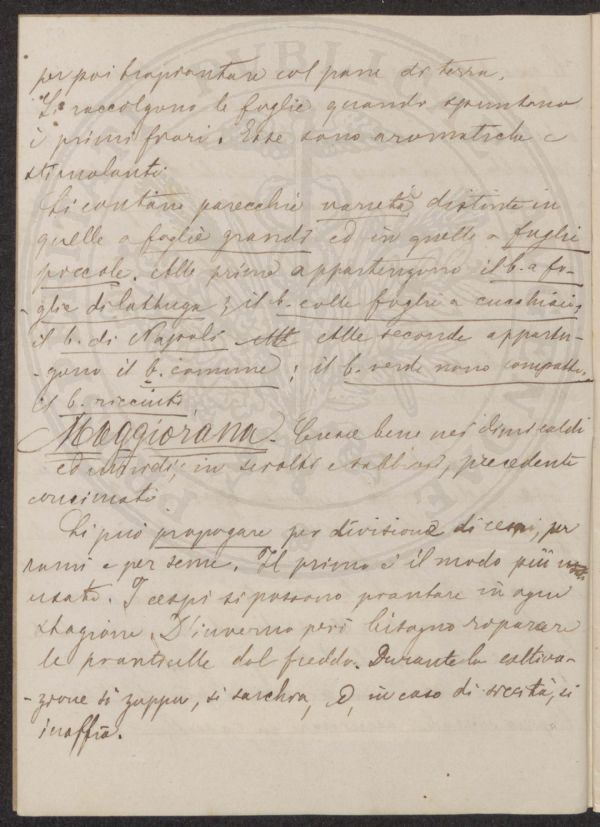 per poi trapiantare col pane di terra.
Si raccolgono le foglie quando spuntano
i primi fiori. Esse sono aromatiche e
stimolanti.
Si contano parecchie varietà distinte in
quelle a foglie grandi ed in quelle a foglie
piccole. Alle prime appartengono il b. a fo-
-glie di lattuga; il b. colle foglie a cucchiaio;
il b. di Napoli. Alle seconde apparten-
-gono il b. comune; il b. verde nano compatto,
il b. ricciuto
Maggiorana. Cresce bene nei climi caldi
ed umidi; in sciolti e sabbiosi, precedente
concimati.
Si può propagare per divisione di cespi, per
rami e per seme. Il primo è il modo più
usato. I cespi si possono piantare in ogni
stagione. D'inverno però bisogna riparare
le pianticelle dal freddo. Durante la coltiva-
-zione si zappa, si sarchia, e, in caso di siccità, si
inaffia.